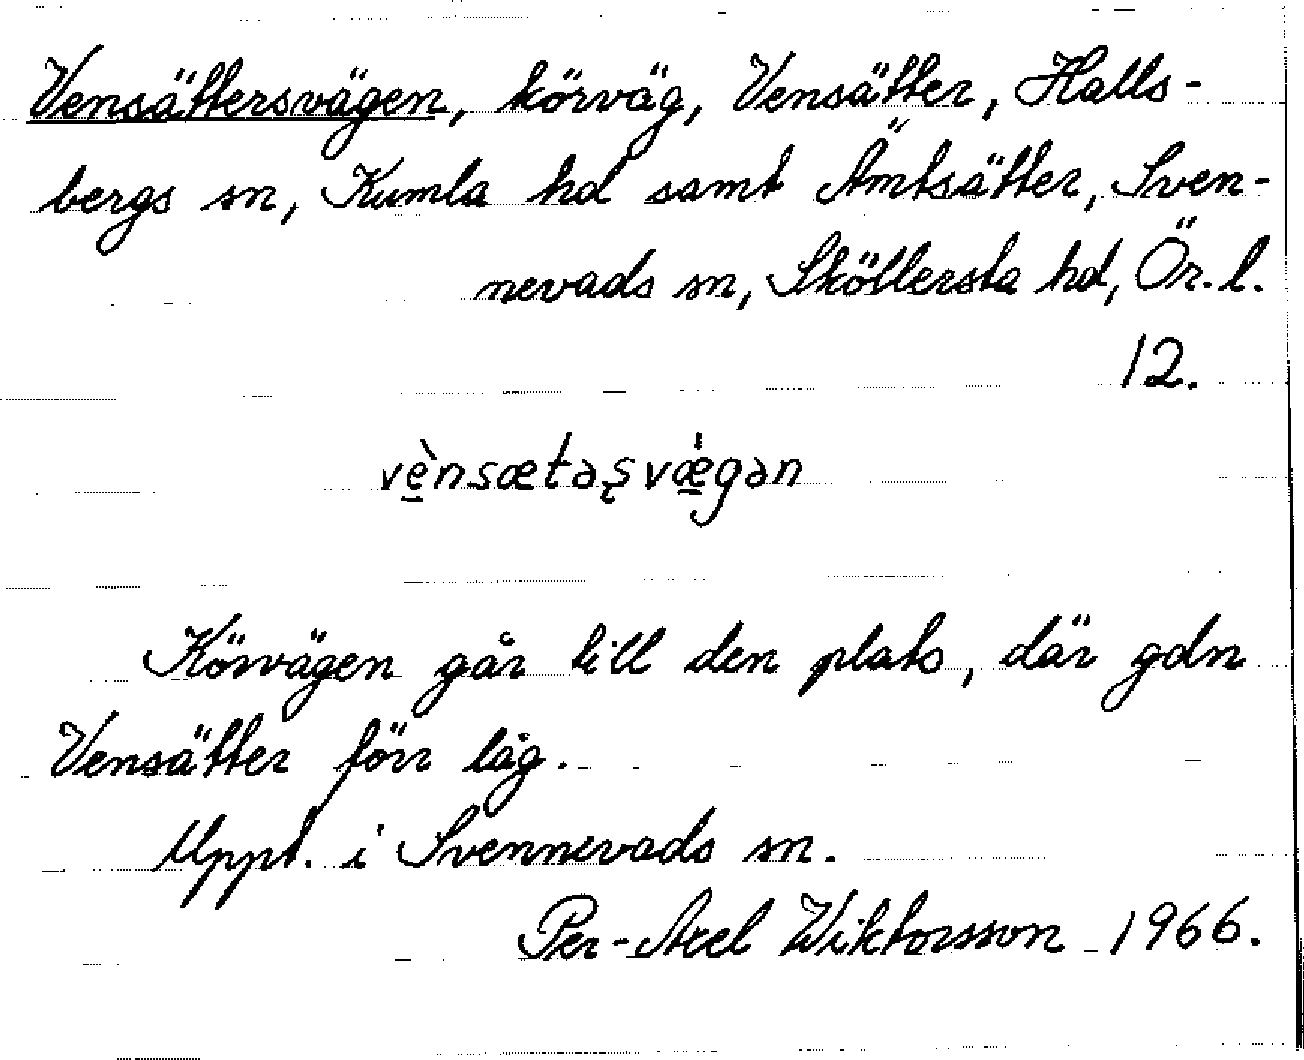 Vensättersvägen, körväg, Vensätter, Halls-
bergs sn, Kumla hd samt Ämtsätter, Sven-
nevads sn, Sköllersta hd, Ör. l.
12.
vè̠nsætəşvæ̠̍gən
Körvägen går till den plats, där gdn
Vensätter förr låg.
Uppt. i Svennevads sn.
Per-Axel Wiktorsson 1966.